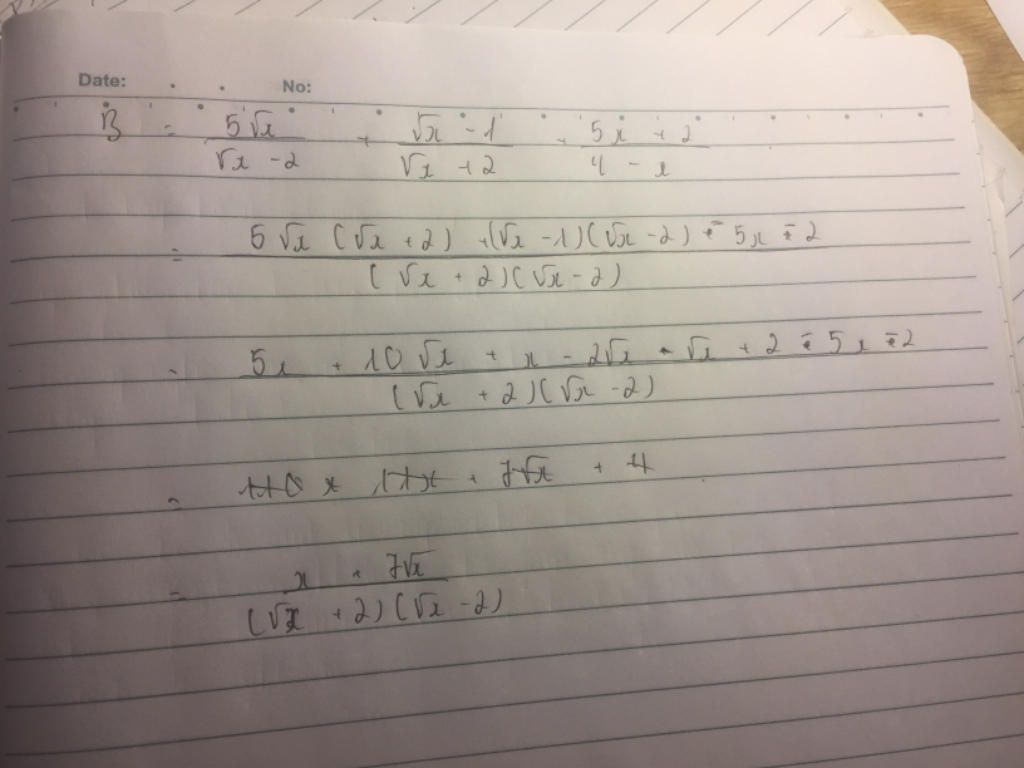 Date: No:
B = \frac{5\sqrt{x}}{\sqrt{x} - 2} + \frac{\sqrt{x} - 1}{\sqrt{x} + 2} + \frac{5x + 2}{4 - x}
= \frac{5\sqrt{x}(\sqrt{x} + 2) + (\sqrt{x} - 1)(\sqrt{x} - 2) - 5x - 2}{(\sqrt{x} + 2)(\sqrt{x} - 2)}
= \frac{5x + 10\sqrt{x} + x - 2\sqrt{x} - \sqrt{x} + 2 - 5x - 2}{(\sqrt{x} + 2)(\sqrt{x} - 2)}
= 11x + 7\sqrt{x} + 4
= \frac{x + 7\sqrt{x}}{(\sqrt{x} + 2)(\sqrt{x} - 2)}